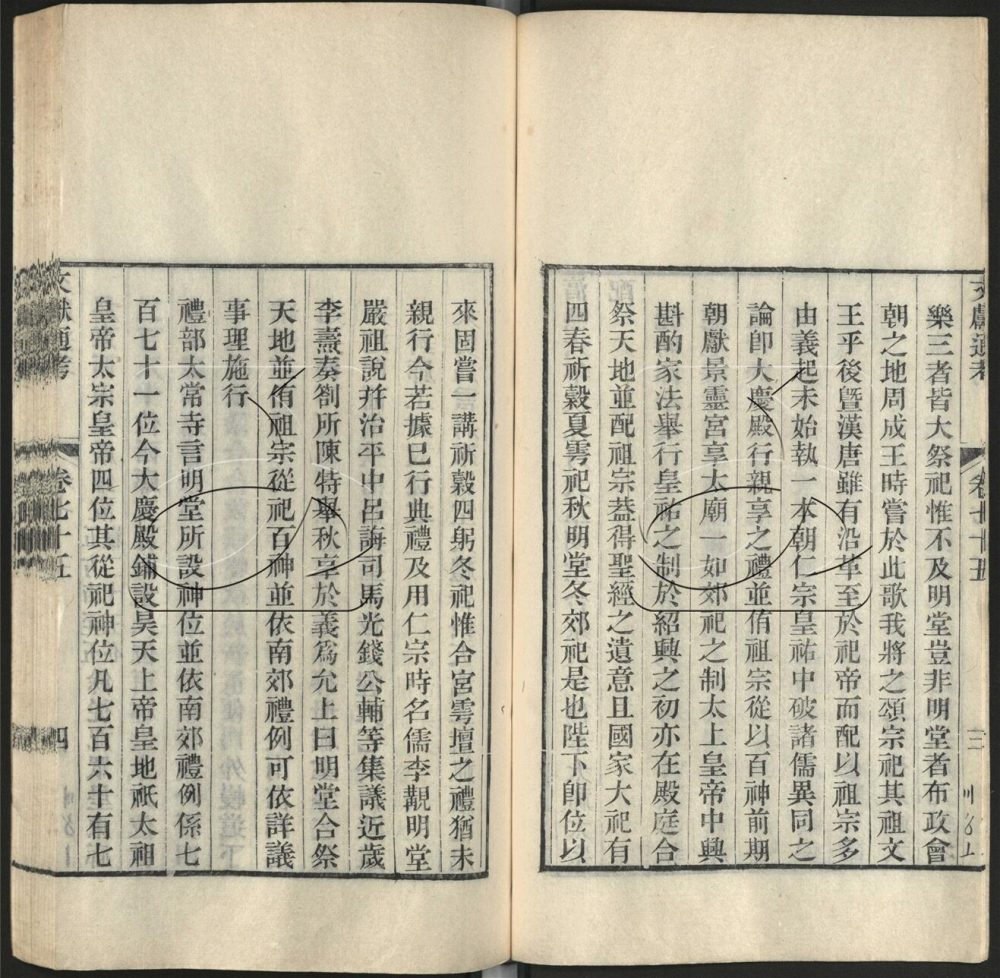 樂三者皆大祭祀惟不及明堂豈非明堂者布政會
朝之地周成王時嘗於此歌我將之頌宗祀其祖文
王乎後曁漢唐雖有沿革至於祀帝而配以祖宗多
由義起未始執一本朝仁宗皇祐中破諸儒異同之
論卽大慶殿行親享之禮並侑祖宗從以百神前期
朝獻景靈宮享太廟一如郊祀之制太上皇帝中興
斟酌家法舉行皇祐之制於紹興之初亦在殿庭合
祭天地並配祖宗葢得聖經之遺意且國家大祀有
四春祈穀夏雩祀秋明堂冬郊祀是也陛下卽位以
來固嘗一講祈穀四躬冬祀惟合宮雩壇之禮猶未
親行今若據已行典禮及用仁宗時名儒李覯明堂
嚴祖說幷治平中呂誨司馬光錢公輔等集議近歲
李燾奏劄所陳特舉秋享於義爲允上曰明堂合祭
天地並侑祖宗從祀百神並依南郊禮例可依詳議
事理施行
禮部太常寺言明堂所設神位並依南郊禮例係七
百七十一位今大慶殿鋪設昊天上帝皇地祇太祖
皇帝太宗皇帝四位其從祀神位凡七百六十有七
文獻通考
卷七十五
四